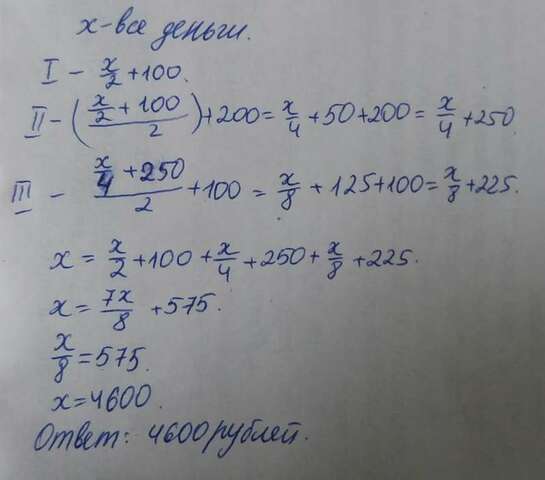 x-все деньги.
I - x/2 + 100.
II - ((x/2 + 100)/2) + 200 = x/4 + 50 + 200 = x/4 + 250.
III - (x/4 + 250)/2 + 100 = x/8 + 125 + 100 = x/8 + 225.
x = x/2 + 100 + x/4 + 250 + x/8 + 225.
x = 7x/8 + 575.
x/8 = 575.
x = 4600.
Ответ: 4600 рублей.